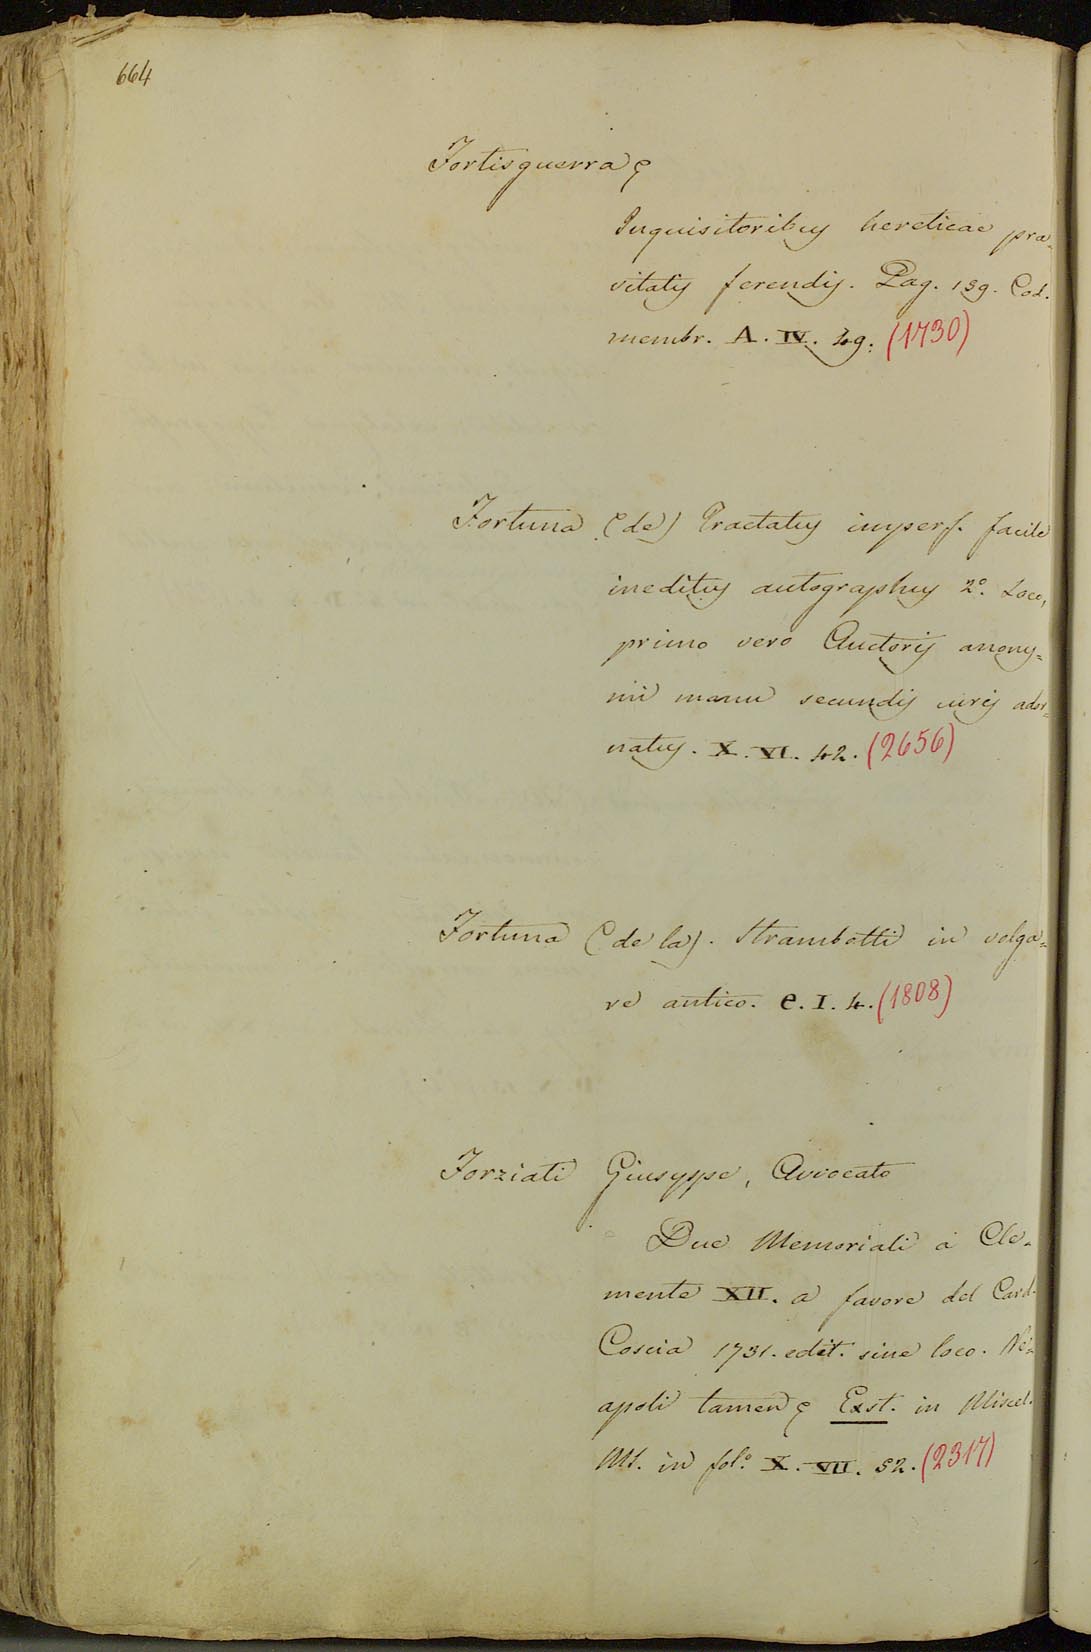 664
Fortisguerra &
Inquisitoribus hereticae pra=
vitatis ferendis. Pag. 159. Cod.
membr. A. IV. 49. (1730)
Fortuna (de) Tractatus imperf. facile
ineditus autographus 2º. Loco,
primo vero Auctoris anony=
mi manu secundis curis ador=
natus. X. VI. 42. (2656)
Fortuna (de la). Strambotti in volga=
re antico. e. I. 4. (1808)
Forziati Giuseppe, Avvocato
Due Memoriali a Cle=
mente XII. a favore del Card.
Coscia 1731. edit. sine loco. Ne=
apoli tamen & Exst. in Miscel.
MS. in folº. X. VII. 52. (2317)